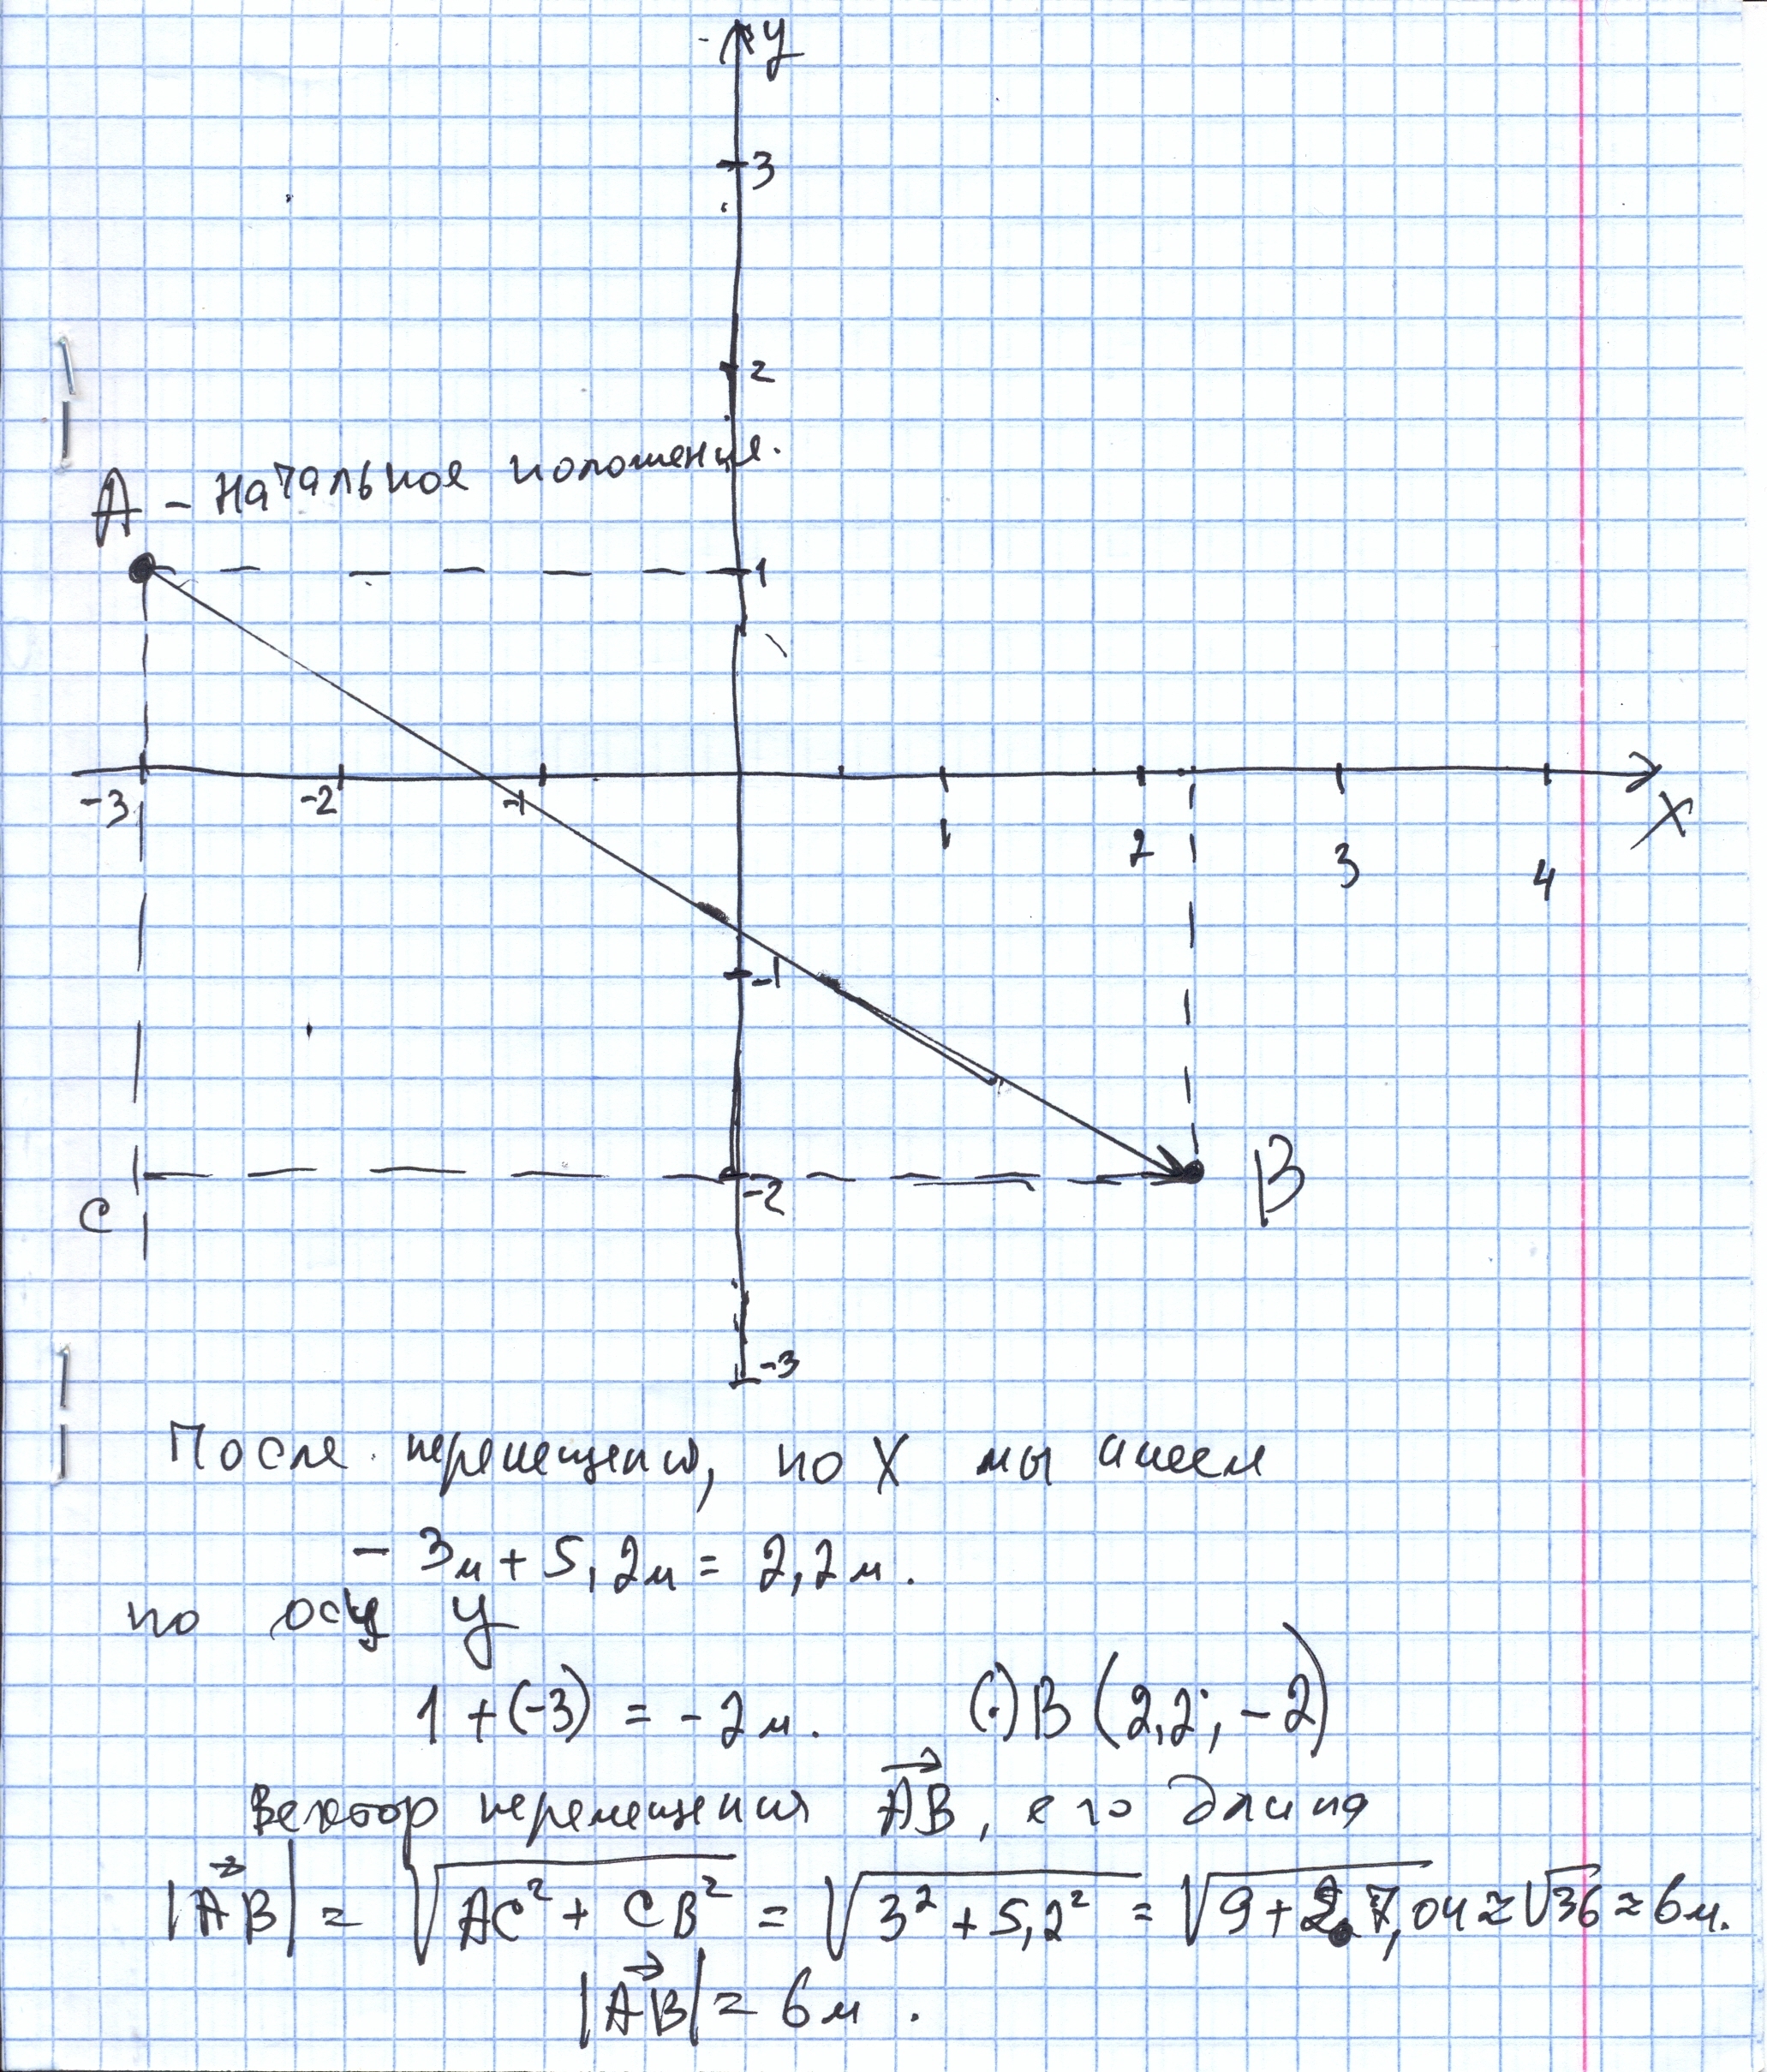 y
3
2
А – начальное положение.
1
-3 -2 -1 1 2 3 4 X
-1
C -2 B
-3
После перемещения, по X мы имеем
- 3м + 5,2м = 2,2м.
по осу y
1 + (-3) = -2м. (·) B (2,2; -2)
Вектор перемещения AB, его длина
|AB| = √AC² + CB² = √3² + 5,2² = √9 + 27,04 ≈ √36 ≈ 6м.
|AB| = 6м.